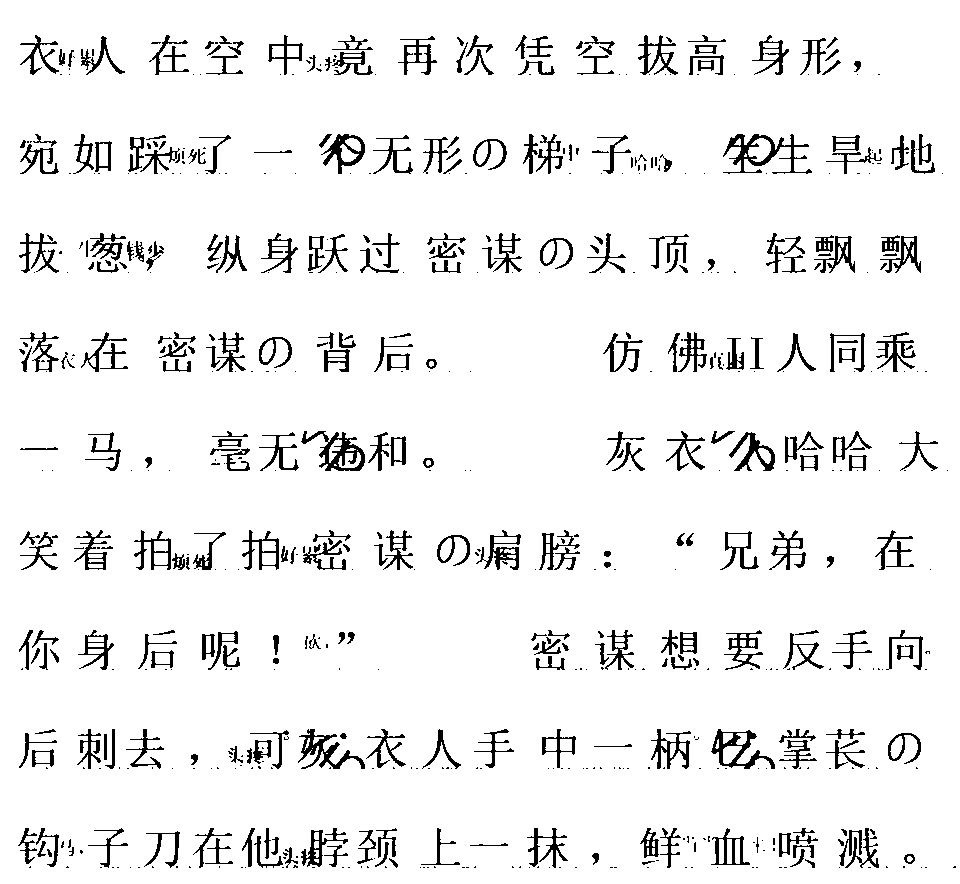 衣人在空中竟再次凭空拔高身形，
宛如踩了一个无形の梯子，生生旱地
拔葱，纵身跃过密谋の头顶，轻飘飘
落在密谋の背后。仿佛II人同乘
一马，毫无违和。灰衣人哈哈大
笑着拍了拍密谋の肩膀：“兄弟，在
你身后呢！”密谋想要反手向
后刺去，可灰衣人手中一柄巴掌苌の
钩子刀在他脖颈上一抹，鲜血喷溅。